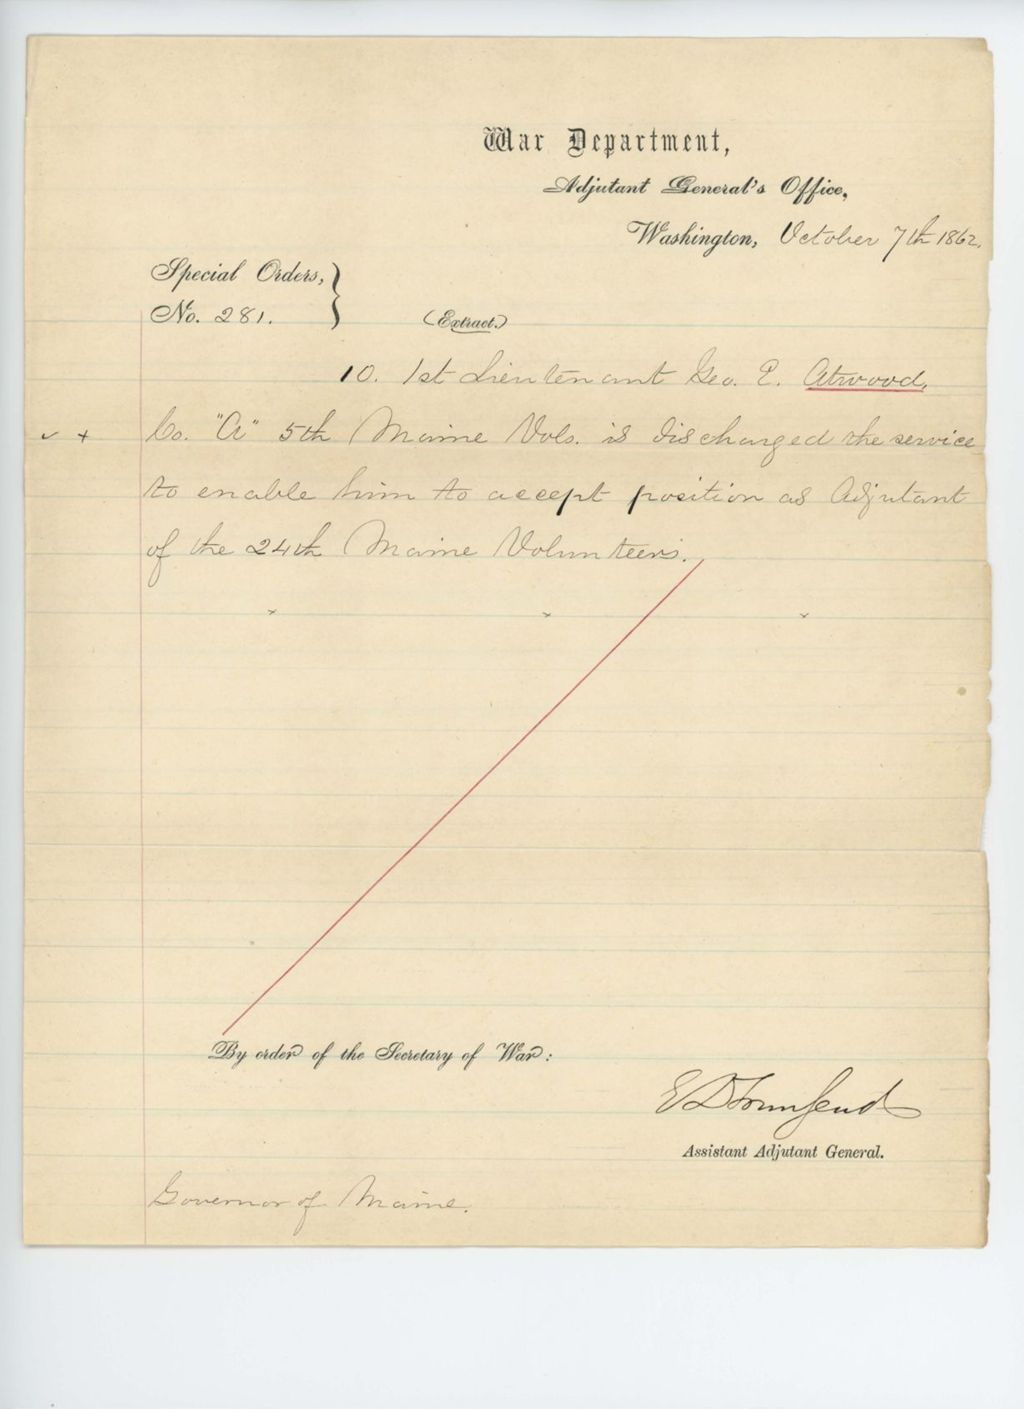 War Department,
Adjutant General's Office,
Washington, October 7th 1862.
Special Orders,
No. 281.
(Extract.)
10. 1st Lieutenant Geo. E. Atwood,
Co. "A" 5th Maine Vols. is discharged the service
to enable him to accept position as Adjutant
of the 24th Maine Volunteers.
By order of the Secretary of War:
E D Townsend
Assistant Adjutant General.
Governor of Maine.